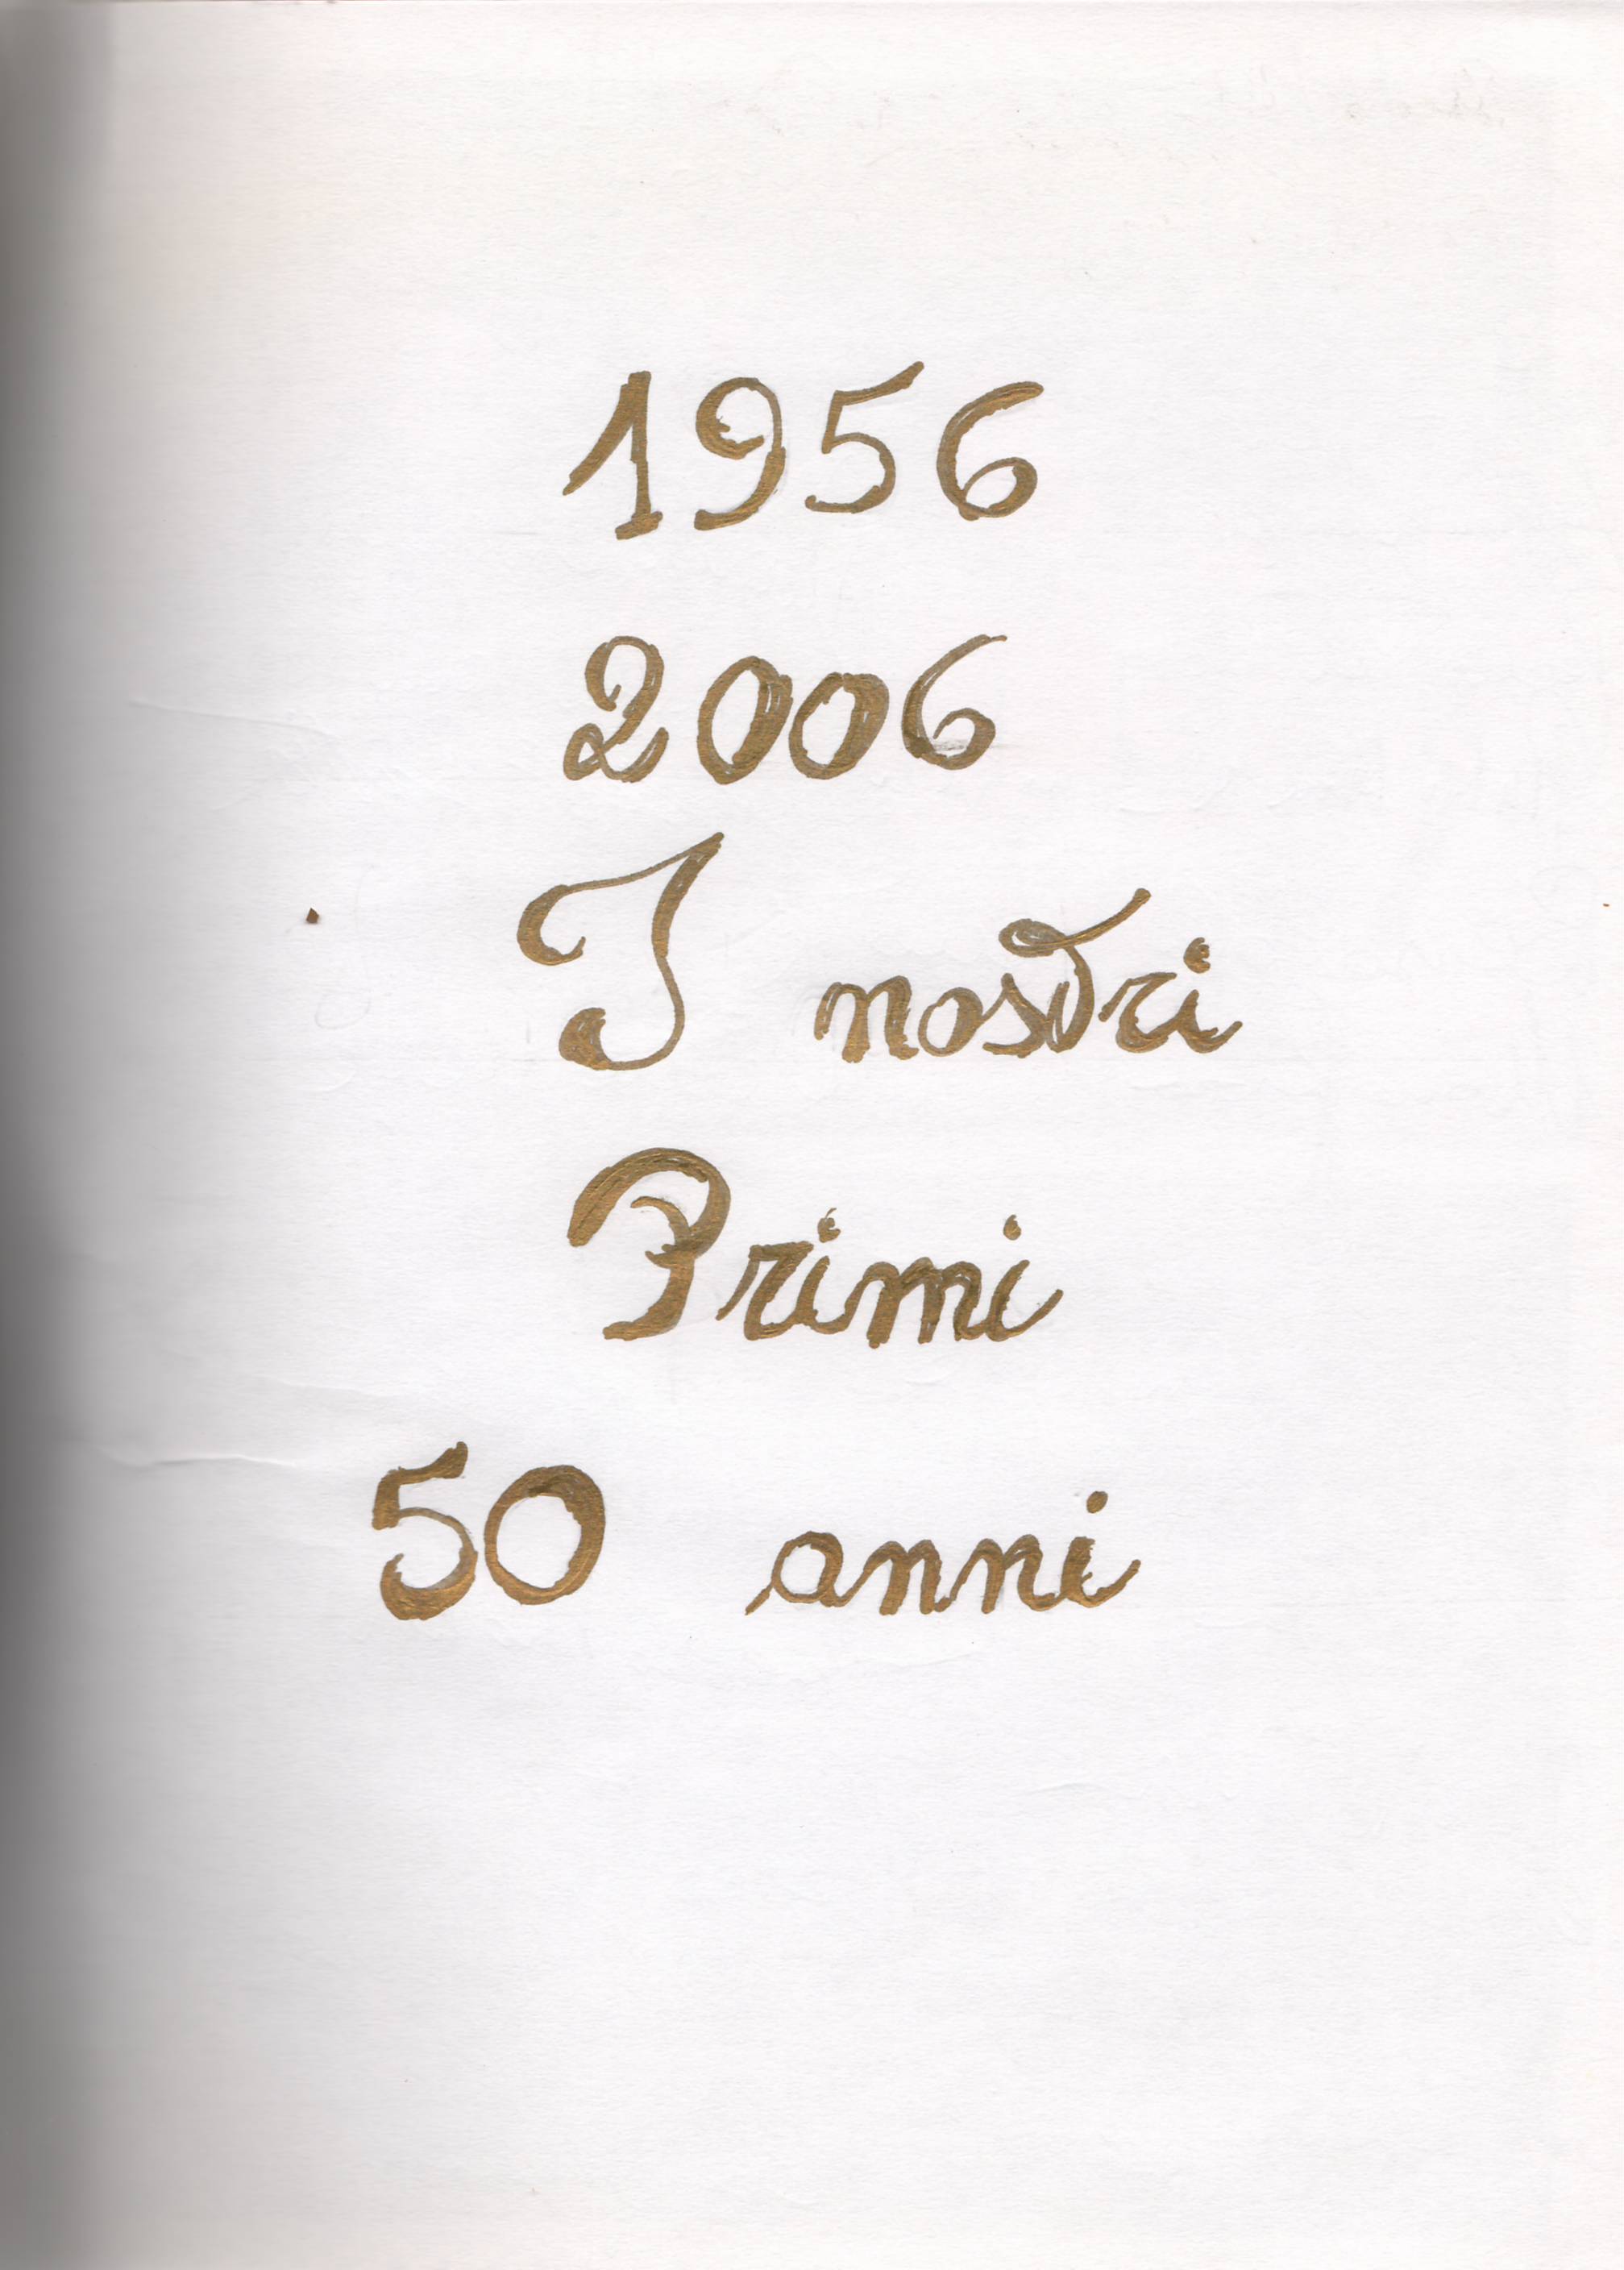 1956
2006
I nostri
Primi
50 anni